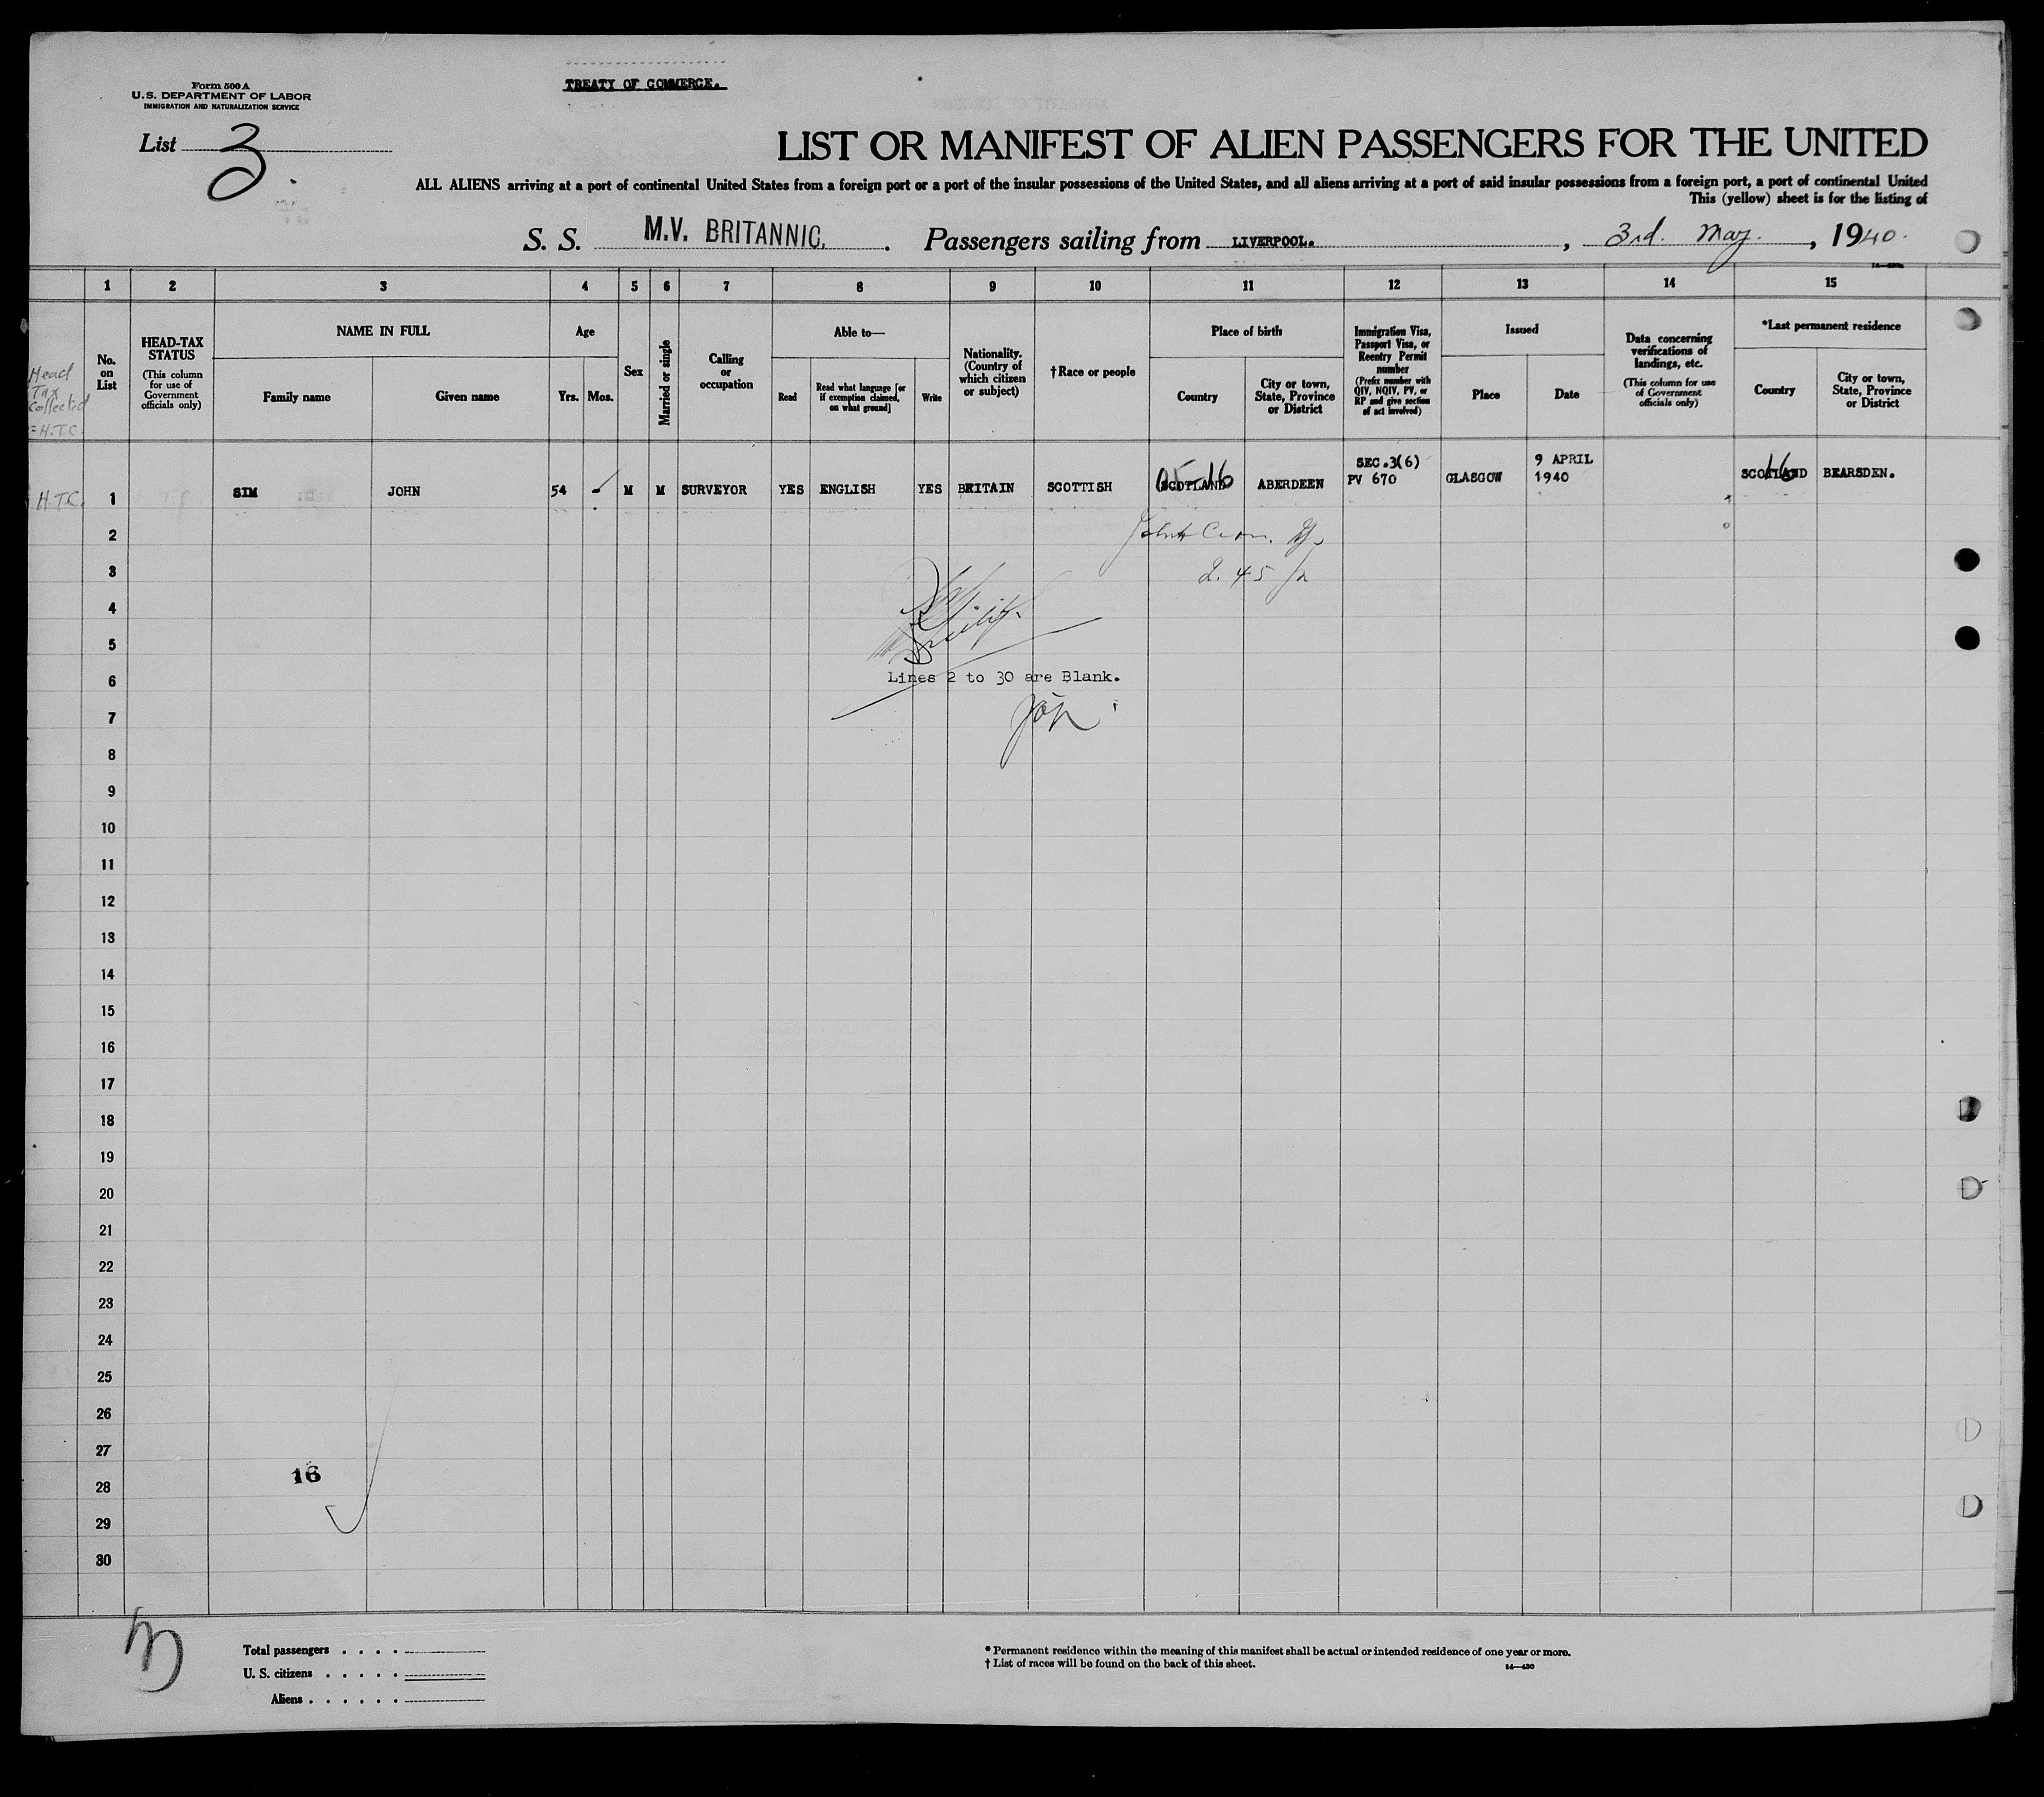 TREATY OF COMMERCE.
Form 500 A
U.S. DEPARTMENT OF LABOR
IMMIGRATION AND NATURALIZATION SERVICE
List 3
LIST OR MANIFEST OF ALIEN PASSENGERS FOR THE UNITED
ALL ALIENS arriving at a port of continental United States from a foreign port or a port of the insular possessions of the United States, and all aliens arriving at a port of said insular possessions from a foreign port, a port of continental United
This (yellow) sheet is for the listing of
S. S. M.V. BRITANNIC. Passengers sailing from LIVERPOOL. , 3rd. May. , 1940.
1 2 3 4 5 6 7 8 9 10 11 12 13 14 15
Head Tax Collected = H.T.C.
No. on List
HEAD-TAX STATUS
(This column for use of Government officials only)
NAME IN FULL
Family name
Given name
Age
Yrs. Mos.
Sex
Married or single
Calling or occupation
Able to—
Read
Read what language [or if exemption claimed, on what ground]
Write
Nationality. (Country of which citizen or subject)
†Race or people
Place of birth
Country
City or town, State, Province or District
Immigration Visa, Passport Visa, or Reentry Permit number
(Prefix number with QIV, NQIV, PV, or RP and give section of act involved)
Issued
Place
Date
Data concerning verifications of landings, etc.
(This column for use of Government officials only)
*Last permanent residence
Country
City or town, State, Province or District
H.T.C. 1 SIM JOHN 54 - M M SURVEYOR YES ENGLISH YES BRITAIN SCOTTISH SCOTLAND ABERDEEN SEC.3(6) PV 670 GLASGOW 9 APRIL 1940 SCOTLAND BEARSDEN.
16
2
3
2.45
4
5
6
Lines 2 to 30 are Blank.
7
8
9
10
11
12
13
14
15
16
17
18
19
20
21
22
23
24
25
26
27
16
28
29
30
3
Total passengers . . . .
U. S. citizens . . . . .
Aliens . . . . . .
* Permanent residence within the meaning of this manifest shall be actual or intended residence of one year or more.
† List of races will be found on the back of this sheet.
14—430